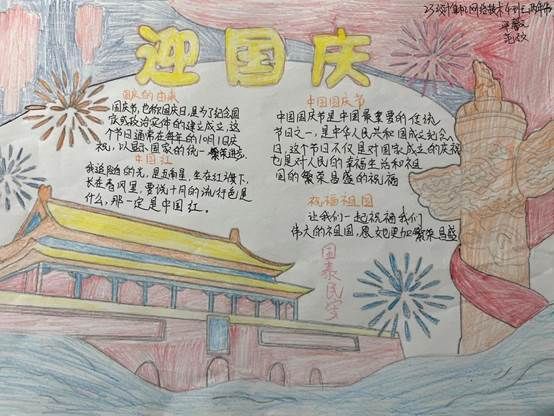 迎国庆
国庆的由来
国庆节,也称国庆日,是为了纪念国
庆或政治实体的建立成立,这
个节日通常在每年的10月1日庆
祝,以显示国家的统一繁荣进步
中国红
我追随的光,是五南星,生在红旗下,
长在春风里,要说十月的流行色是
什么,那一定是中国红。
中国国庆节
中国国庆节是中国最重要的传统
节日之一,是中华人民共和国成立纪念
日,这个节日不仅是对国家成立的庆祝
也是对人民的幸福生活和祖
国的繁荣昌盛的祝福
祝福祖国
让我们一起祝福我们
伟大的祖国,愿她更加繁荣昌盛
国泰民安